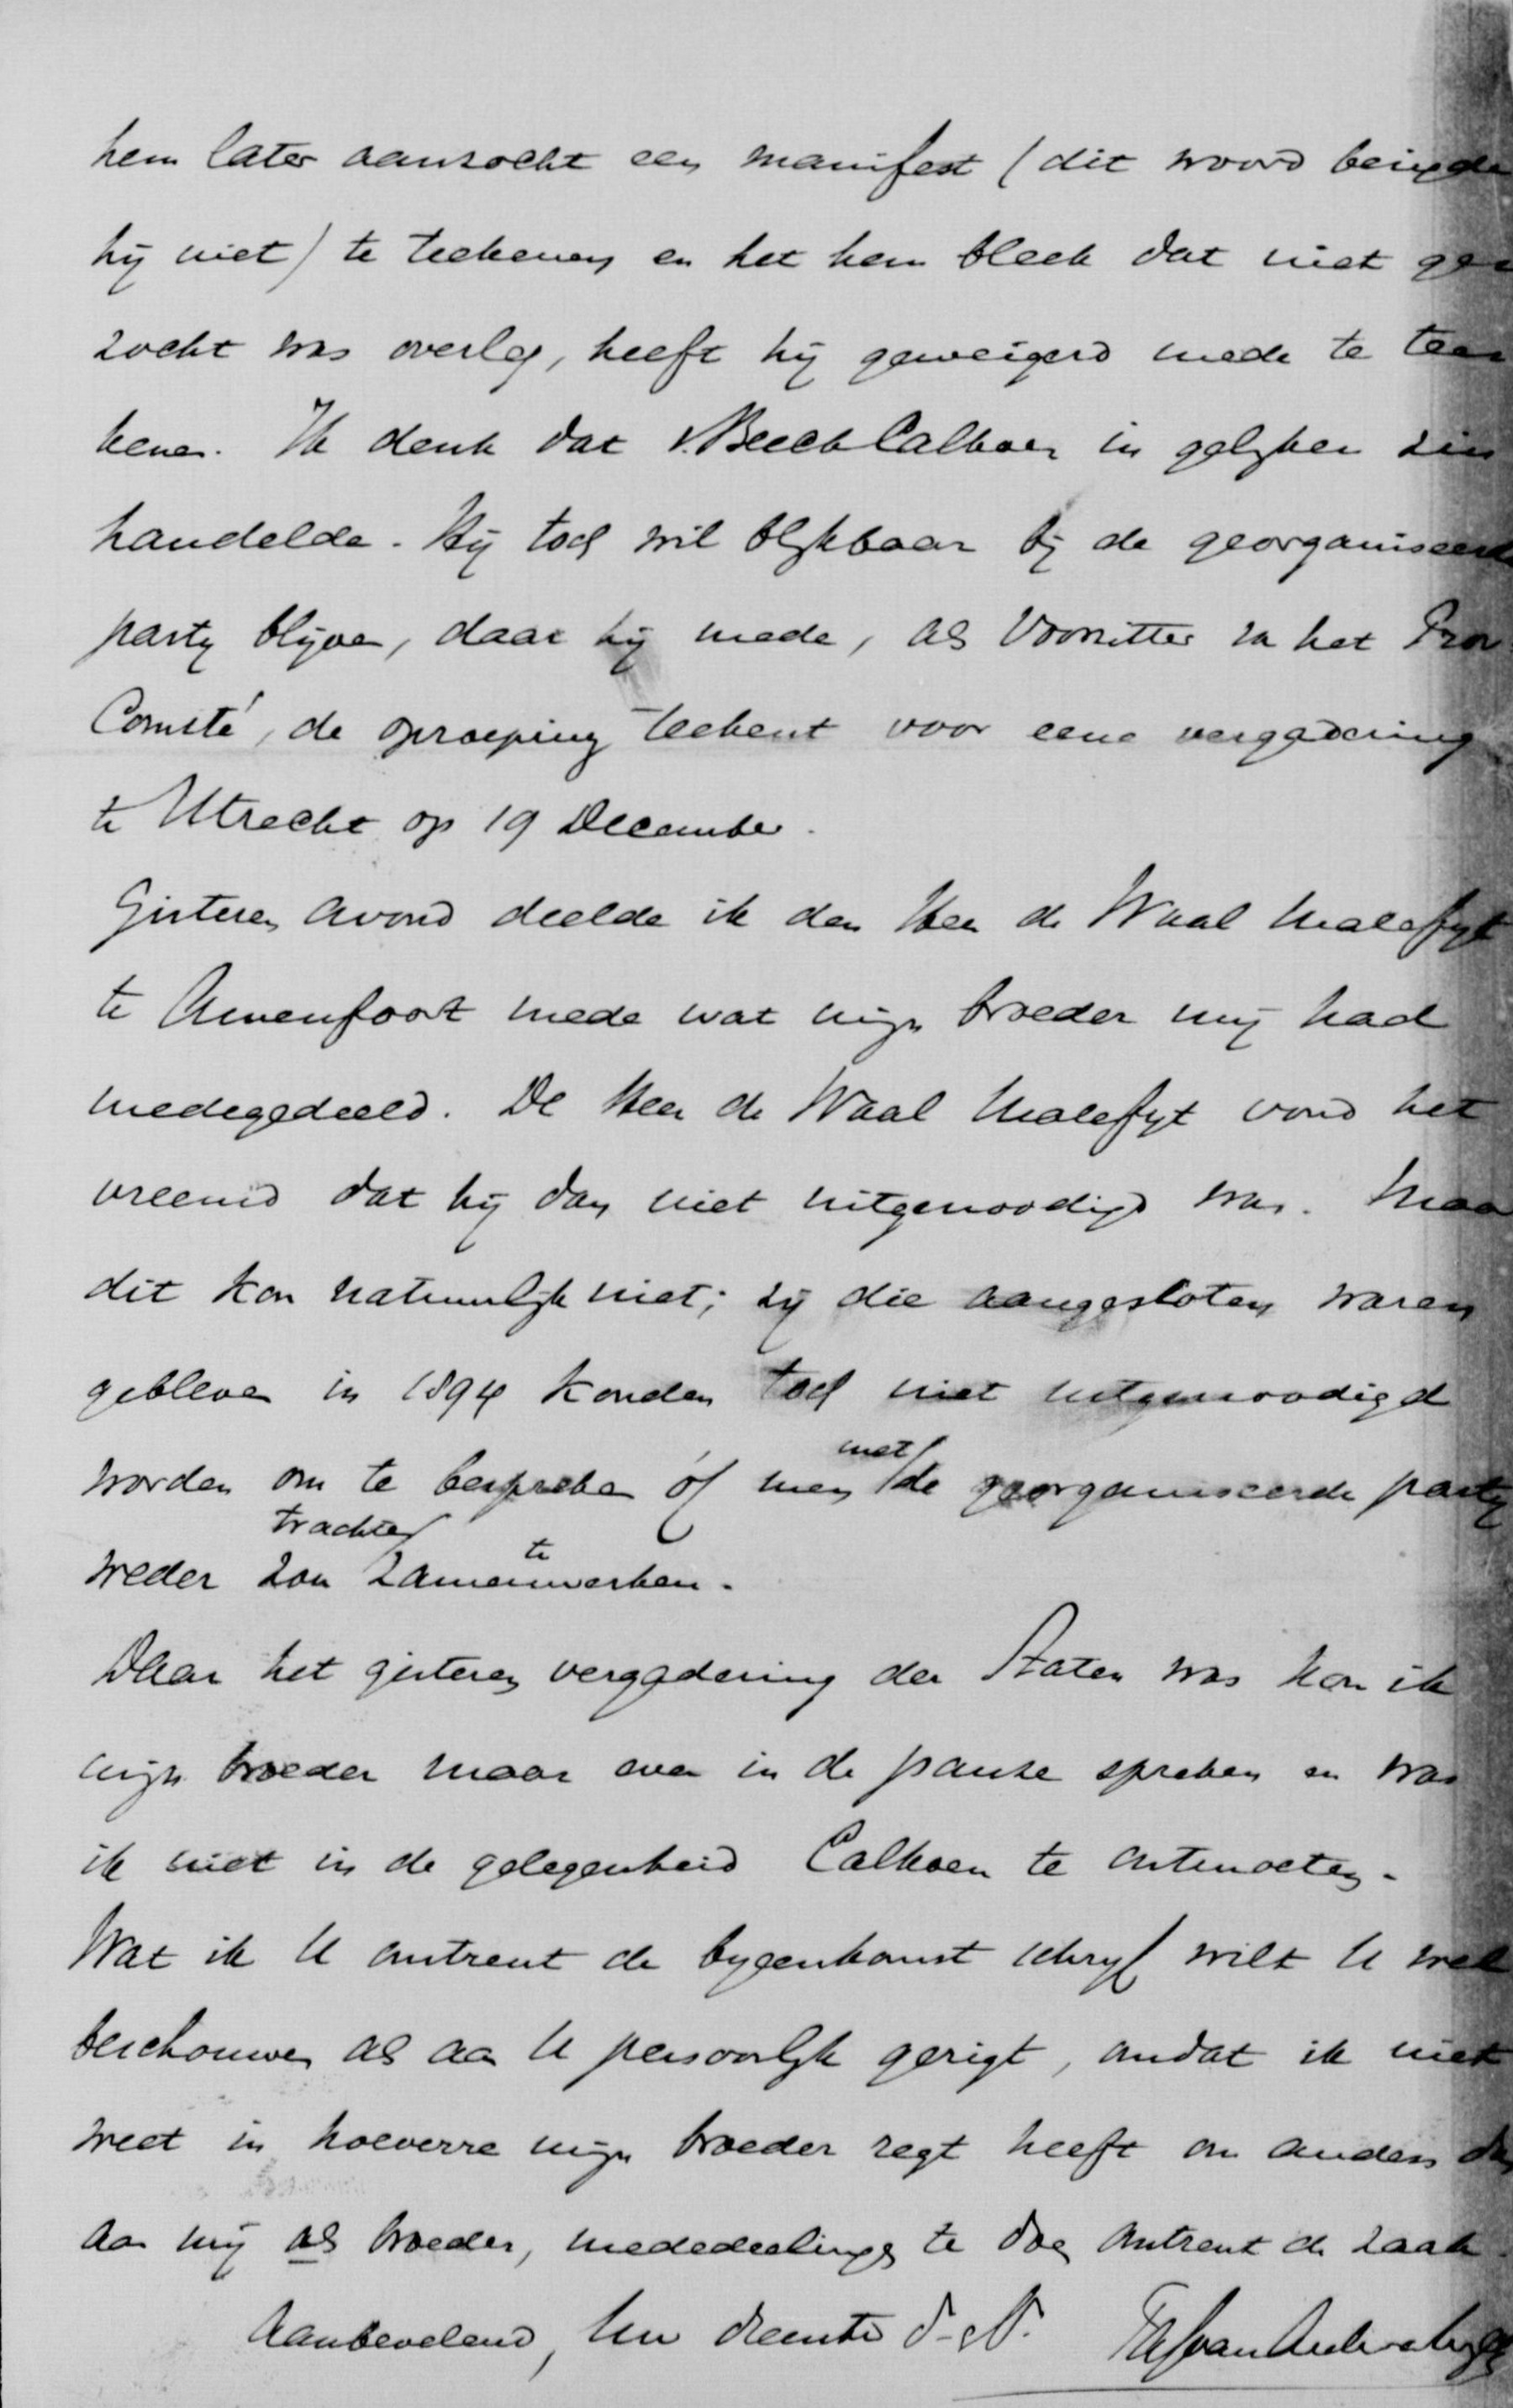 hem later aanzocht een manifest (dit woord bezigde
hij niet) te teekenen en het hem bleek dat niet ge
zocht was overleg, heeft hij geweigerd mede te tee
kenen. Ik denk dat v. Beeck Calkoen in gelyken zin
handelde. Hij toch wil blykbaar bij de georganiseerde
party blijven, daar hij mede, als Voorzitter van het Prov.
Comité, de oproeping teekent voor eene vergadering
te Utrecht op 19 December.
Gisteren avond deelde ik den Heer de Waal Malefyt
te Amersfoort mede wat mijn broeder mij had
medegedeeld. De Heer de Waal Malefyt vond het
vreemd dat hij dan niet uitgenoodigd was. Maar
dit kon natuurlyk niet; zij die aangesloten waren
gebleven in 1894 konden toch niet uitgenoodigd
worden om te bespreken óf men met de georganiseerde party
weder zou trachten zamen te werken.
Daar het gisteren vergadering der Staten was kon ik
mijn broeder maar even in de pauze spreken en was
ik niet in de gelegenheid Calkoen te ontmoeten.
Wat ik U omtrent de byeenkomst schryf wilt U wel
beschouwen als aan U persoonlyk gerigt, omdat ik niet
weet in hoeverre mijn broeder regt heeft om anders dan
aan mij als broeder, mededeelingen te doen omtrent de zaak.
Aanbevelend, Uw dienstw.